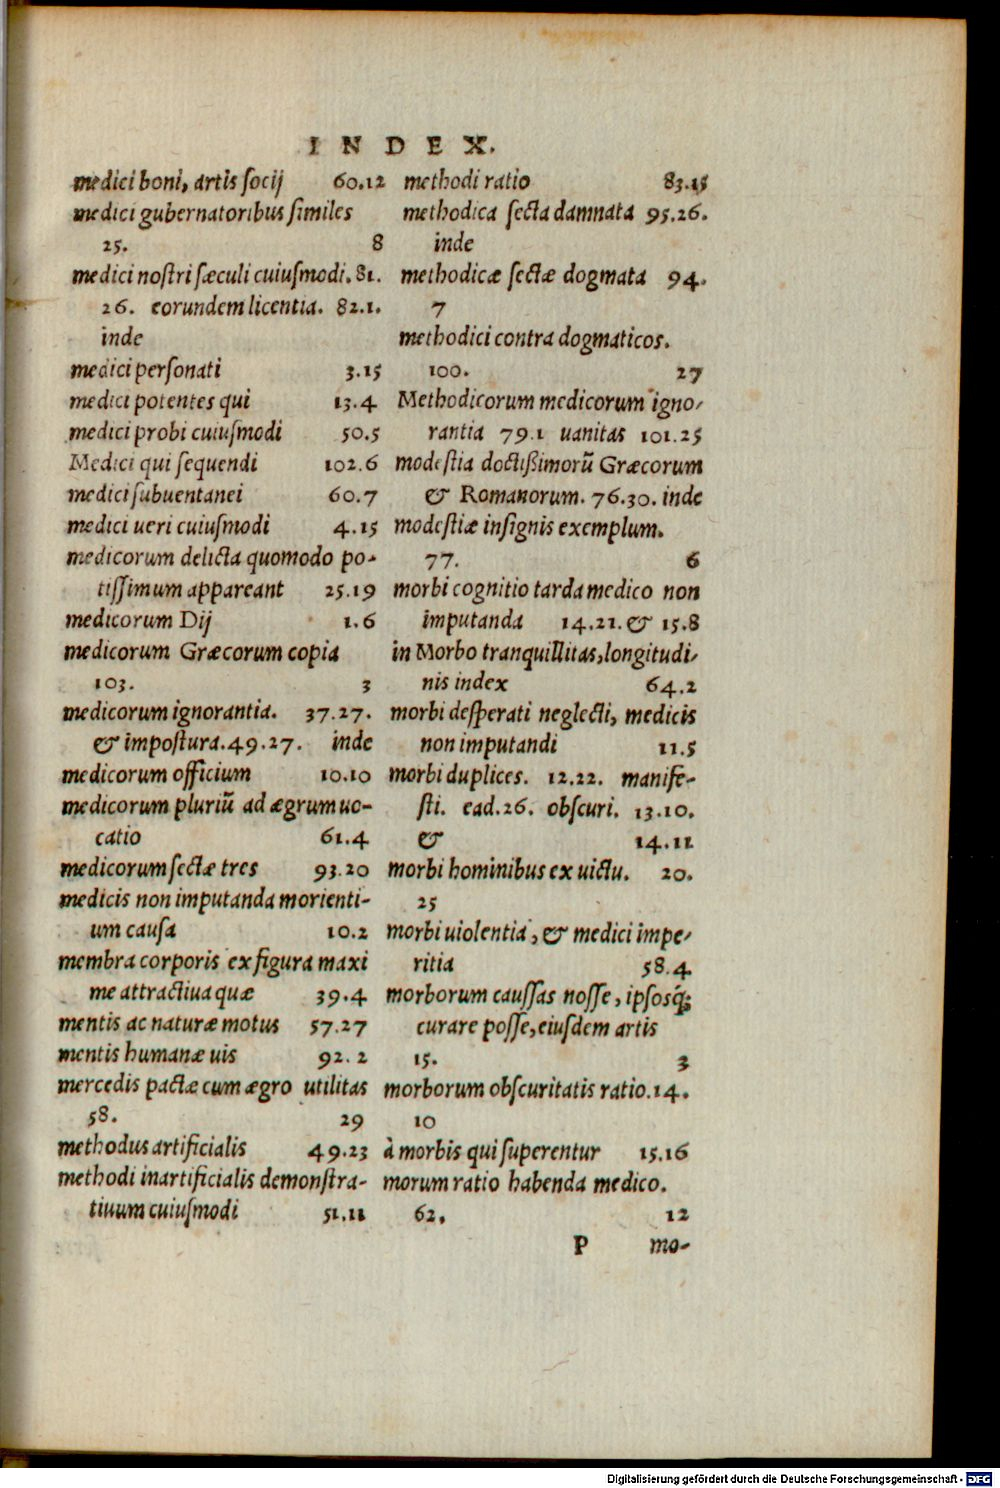 INDEX.
medici boni, artis ſocij 60.12
medici gubernatoribus ſimiles
25. 8
medici noſtri ſæculi cuiuſmodi. 81.
26. eorundem licentia. 82.1.
inde
medici perſonati 3.15
medici potentes qui 13.4
medici probi cuiuſmodi 50.5
Medici qui ſequendi 102.6
medici ſubuentanei 60.7
medici ueri cuiuſmodi 4.15
medicorum delicta quomodo po-
tiſſimum appareant 25.19
medicorum Dij 1.6
medicorum Græcorum copia
103. 3
medicorum ignorantia. 37.27.
& impoſtura. 49.27. inde
medicorum officium 10.10
medicorum pluriũ ad ægrum uo-
catio 61.4
medicorum ſectæ tres 93.20
medicis non imputanda morienti-
um cauſa 10.2
membra corporis ex figura maxi
me attractiua quæ 39.4
mentis ac naturæ motus 57.27
mentis humanæ uis 92.2
mercedis pactæ cum ægro utilitas
58. 29
methodus artificialis 49.23
methodi inartificialis demonſtra-
tiuum cuiuſmodi 51.11
methodi ratio 83.15
methodica ſecta damnata 95.26.
inde
methodicæ ſectæ dogmata 94.
7
methodici contra dogmaticos.
100. 27
Methodicorum medicorum igno-
rantia 79.1 uanitas 101.25
modeſtia doctißimorũ Græcorum
& Romanorum. 76.30. inde
modeſtiæ inſignis exemplum.
77. 6
morbi cognitio tarda medico non
imputanda 14.21. & 15.8
in Morbo tranquillitas, longitudi-
nis index 64.2
morbi deſperati neglecti, medicis
non imputandi 11.5
morbi duplices. 12.22. manife-
ſti. ead. 26. obſcuri. 13.10.
& 14.11
morbi hominibus ex uictu. 20.
25
morbi uiolentia, & medici impe-
ritia 58.4
morborum cauſſas noſſe, ipſosq́;
curare poſſe, eiuſdem artis
15. 3
morborum obſcuritatis ratio. 14.
10
à morbis qui ſuperentur 15.16
morum ratio habenda medico.
62. 12
P mo-
Digitalisierung gefördert durch die Deutsche Forschungsgemeinschaft - DFG